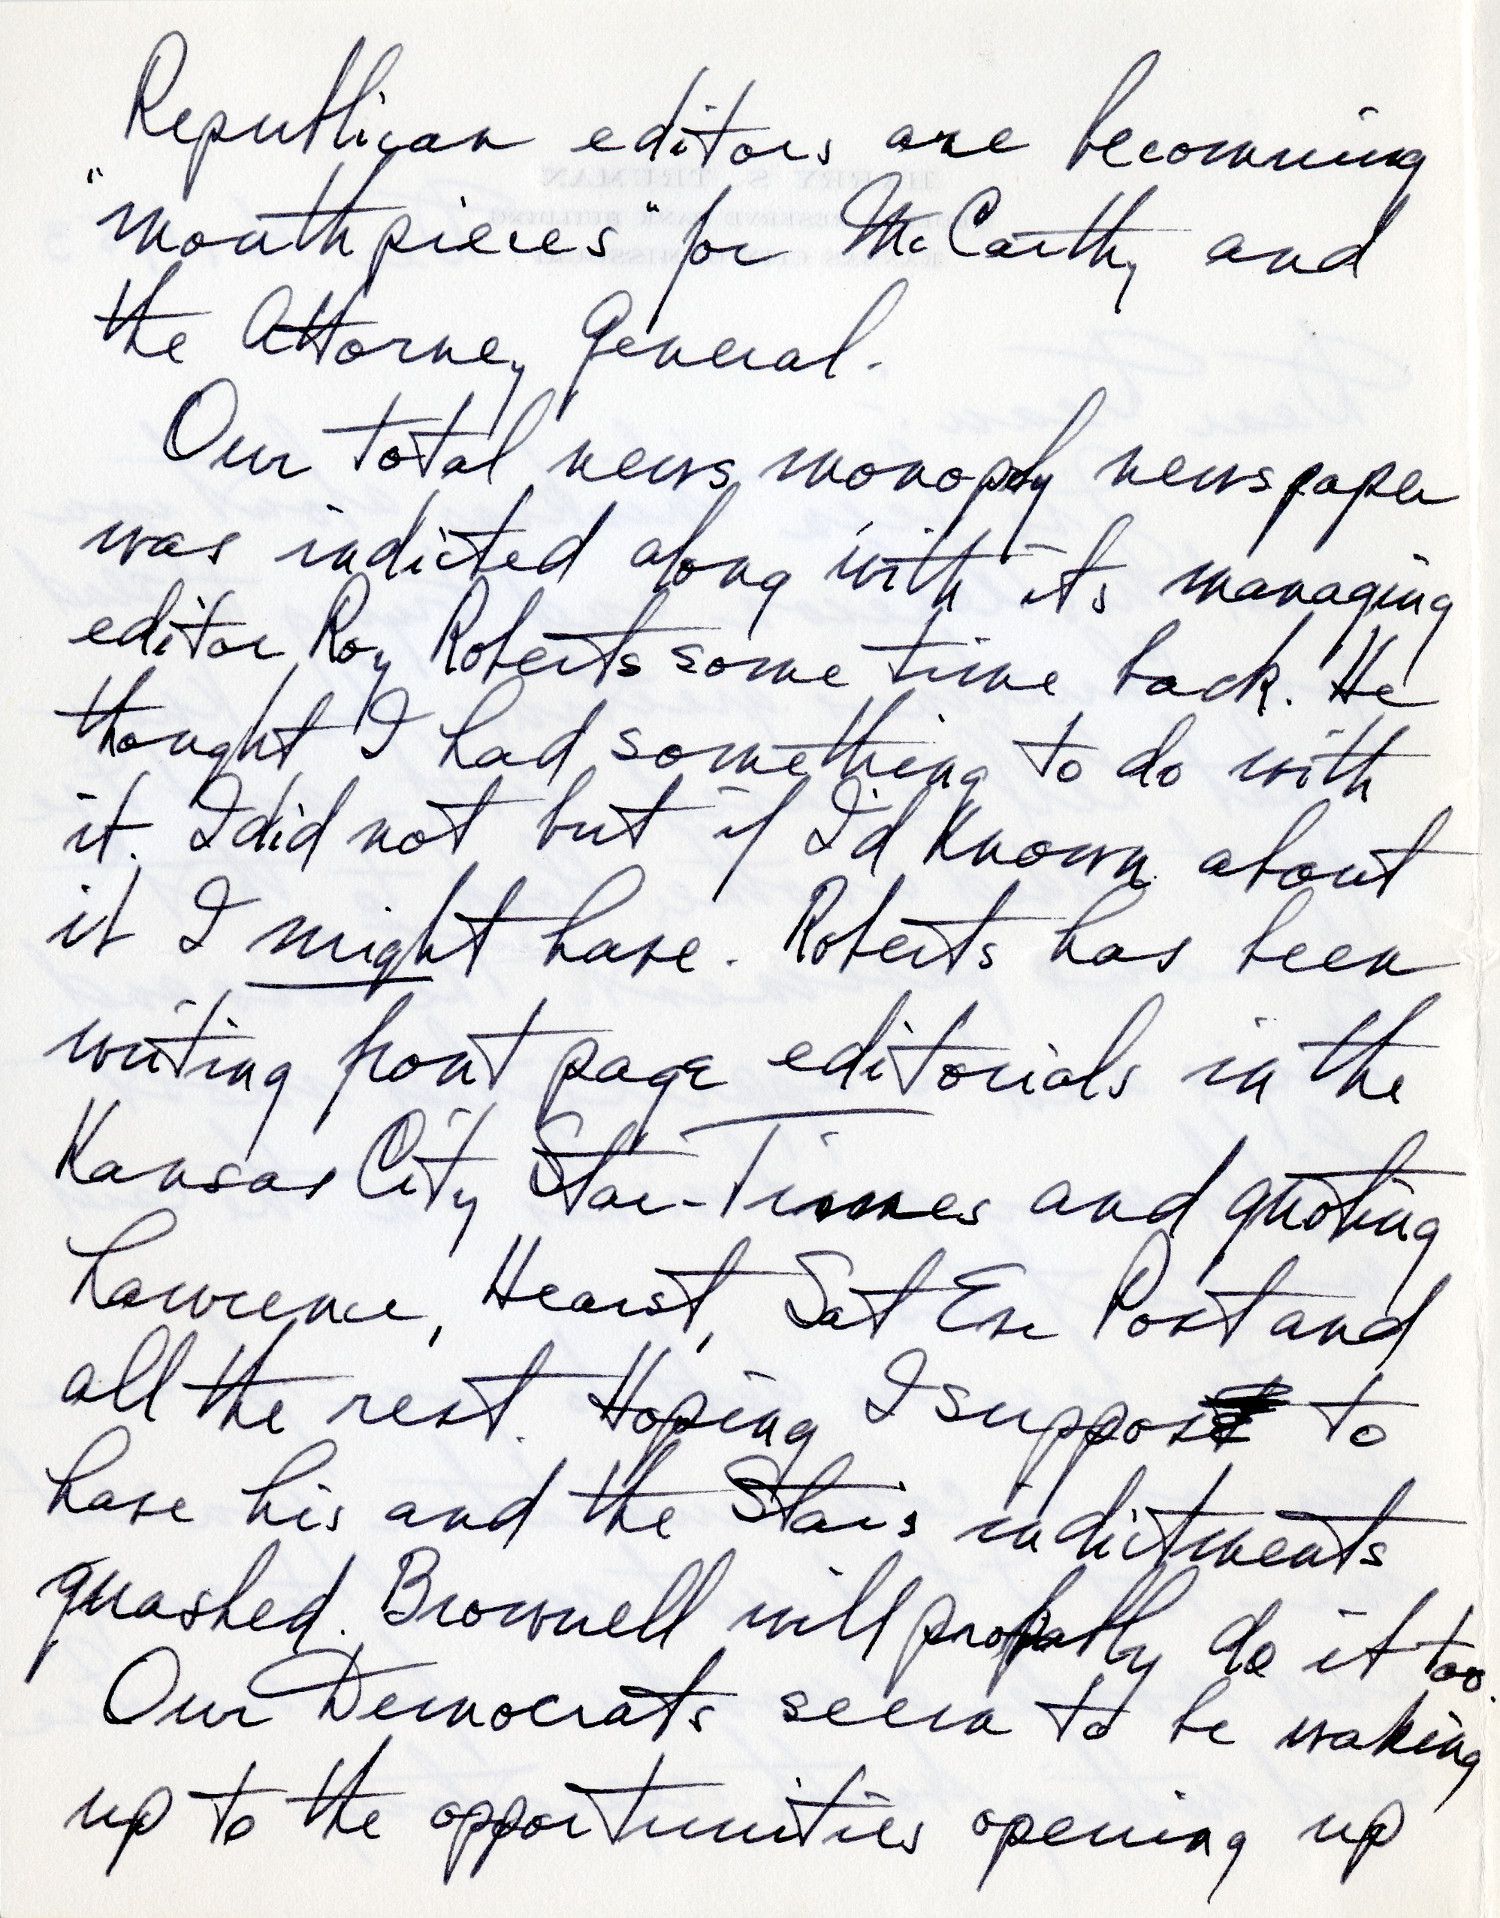 Republican editors are becomming
"mouthpieces" for McCarthy and
the Attorney General.
Our total news monoply newspaper
was indicted along with its managing
editor Roy Roberts some time back. He
thought I had something to do with
it. I did not but if I'd known about
it I might have. Roberts has been
writing front page editorials in the
Kansas City Star-Times and quoting
Lawrence, Hearst, Sat Eve Post and
all the rest. Hoping I suppose to
have his and the Stars indictments
quashed. Brownell will probably do it too.
Our Democrats seem to be waking
up to the opportunities opening up